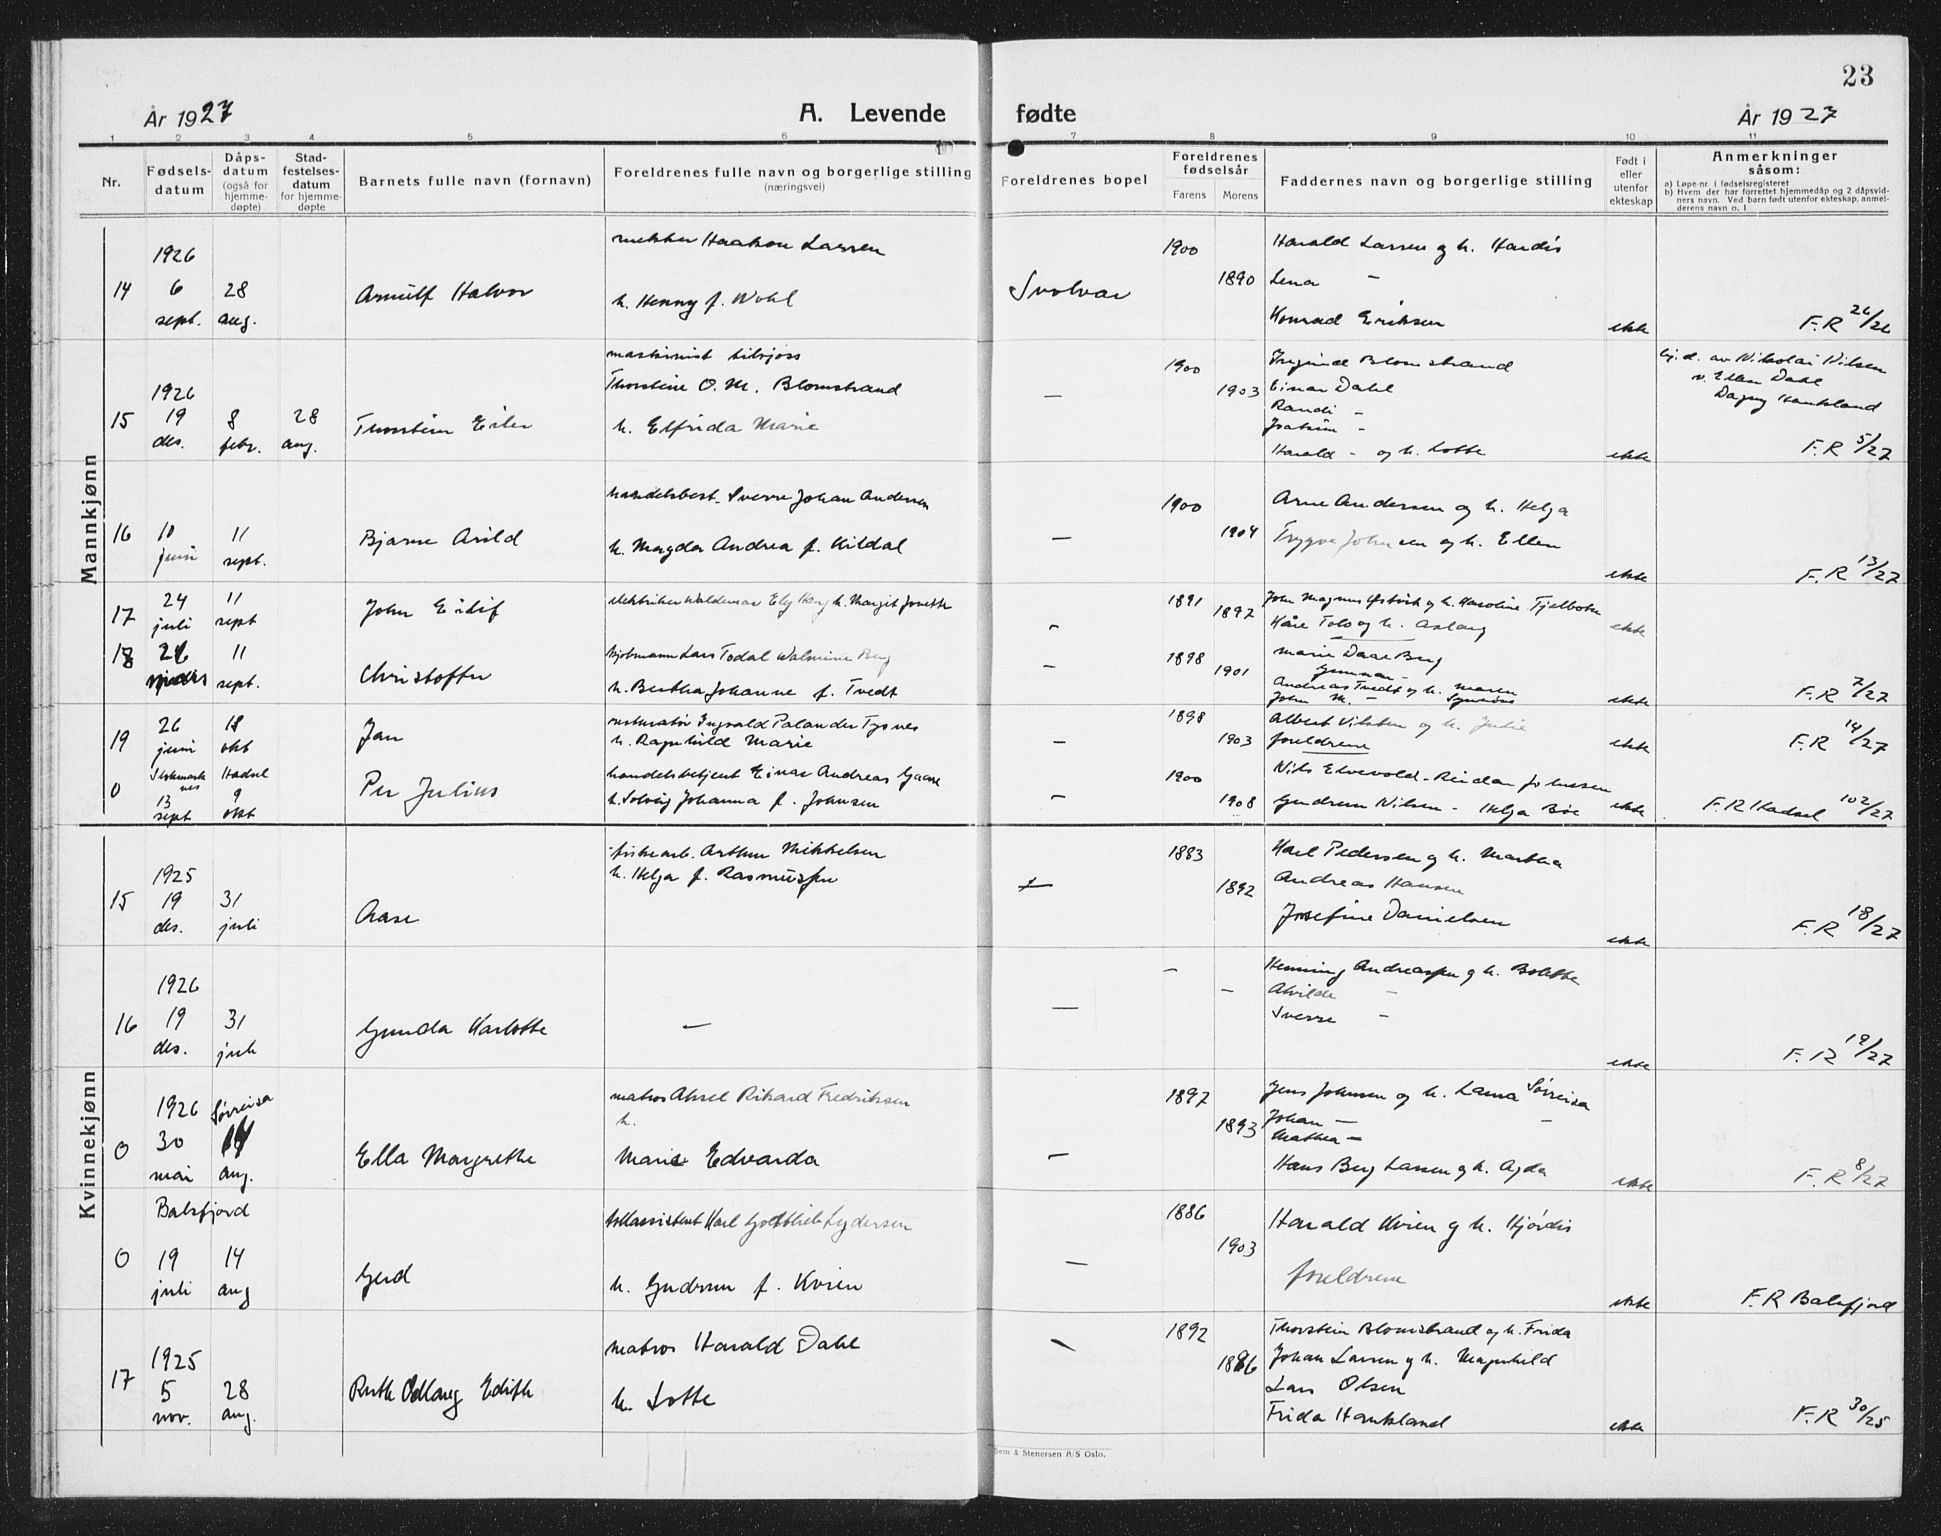 23
År 1927 A. Levende fødte År 1927
1 2 3 4 5 6 7 8 9 10 11
Nr. Fødsels-datum Dåps-datum (også for hjemme-døpte) Stad-festelses-datum for hjemme-døpte Barnets fulle navn (fornavn) Foreldrenes fulle navn og borgerlige stilling (næringsvei) Foreldrenes bopel Foreldrenes fødselsår Farens Morens Faddernes navn og borgerlige stilling Født i eller utenfor ekteskap Anmerkninger såsom:
a) Løpe-nr. i fødselsregisteret
b) Hvem der har forrettet hjemmedåp og 2 dåpsvid-
ners navn. Ved barn født utenfor ekteskap, anmel-
derens navn o. l
Mannkjønn
1926 Haakon Larsen 1900 Harald Larsen og h. Hardis
14 6 28 Arnulf Halvor h. Henny f. Wohl Svolvær 1890 Lena —
sept. aug. Konrad Eriksen ekte F.R 26/26
maskinist tilsjøss
1926 Thorstine O. M. Blomstrand — 1900 1903 Blomstrand hj. d. av Nikolai Nilsen
Einar Dahl v. Ellen Dahl
15 19 8 28 Thorstein Eiler h. Elfrida Marie Randi — Dagny Haukland
des. febr. aug. Joakim —
Harald — og h. Lotte ekte F.R 5/27
handelsbest. Sverre Johan Andersen 1900 Arne Andersen og h. Helga
16 10 11 Bjarne Arild h. Magda Andrea f. Kildal — 1904 Trygve Johnsen og h. Ellen
juni sept. ekte F.R 13/27
17 24 11 John Eilif elektriker Waldemar h. Margit — 1891 1897 John Magnus og h. Karoline
juli sept Kåre og h. Aslaug ekte
18 11 Christoffer Lars Todal — 1898 1901 Marie Daae Berg
sept. h. Bertha Johanne f. Tvedt Andreas Tvedt og h. Maren
John M. — ekte F.R 7/27
19 26 18 Jan Ingvald Palander Tysnes — 1898 1903 Albert og h. Julie
juni okt h. Ragnhild Marie foreldrene ekte F.R 14/27
0 Stokmark-nes Hadsel Per Julius handelsbetjent Einar Andreas Gaare — 1900 Nils Elvevold - Reidar Johnsen
13 9 h. Solveig Johanna f. Johnsen 1908 Gudrun Nilsen - Helga Bøe ekte F.R Hadsel 102/27
sept okt
Kvinnekjønn
fiskearb. Arthur Mikkelsen 1883 Karl Pedersen og h. Martha
1925 h. Helga f. Rasmussen — 1892 Andreas Hansen
15 19 31 Aase Josefine Danielsen
des. juli ekte F.R 18/27
1926 — Henning Andreassen og h. Bolette
— Alvilde —
16 19 31 Gunda Karlotte — — Sverre —
des. juli ekte F.R 19/27
1926 Sørreisa matros Aksel Rikard Fredriksen 1897 Jens Johnsen og h. Laura Sørreisa
h. 1893 Johan — —
0 30 14 Ella Margrethe Marie Edvarda — Mathea —
mai aug. Hans Berg Larsen og h. Agda ekte F.R 8/27
Balsfjord tollassistent Karl Gottlieb Lydersen 1886 Harald Kvien og h. Hjørdis
0 19 14 Gerd h. Gudrun f. Kvien — 1903 foreldrene
juli aug ekte F.R Balsfjord
1925 matros Harald Dahl — 1892 Thorstein Blomstrand og h. Frida
17 5 28 Ruth Odlaug Edith h. Lotte 1896 Johan Larsen og h. Magnhild
nov. aug. Lars Olsen
Frida Haukland ekte F.R 30/25
Sem & Stenersen A/S Oslo.